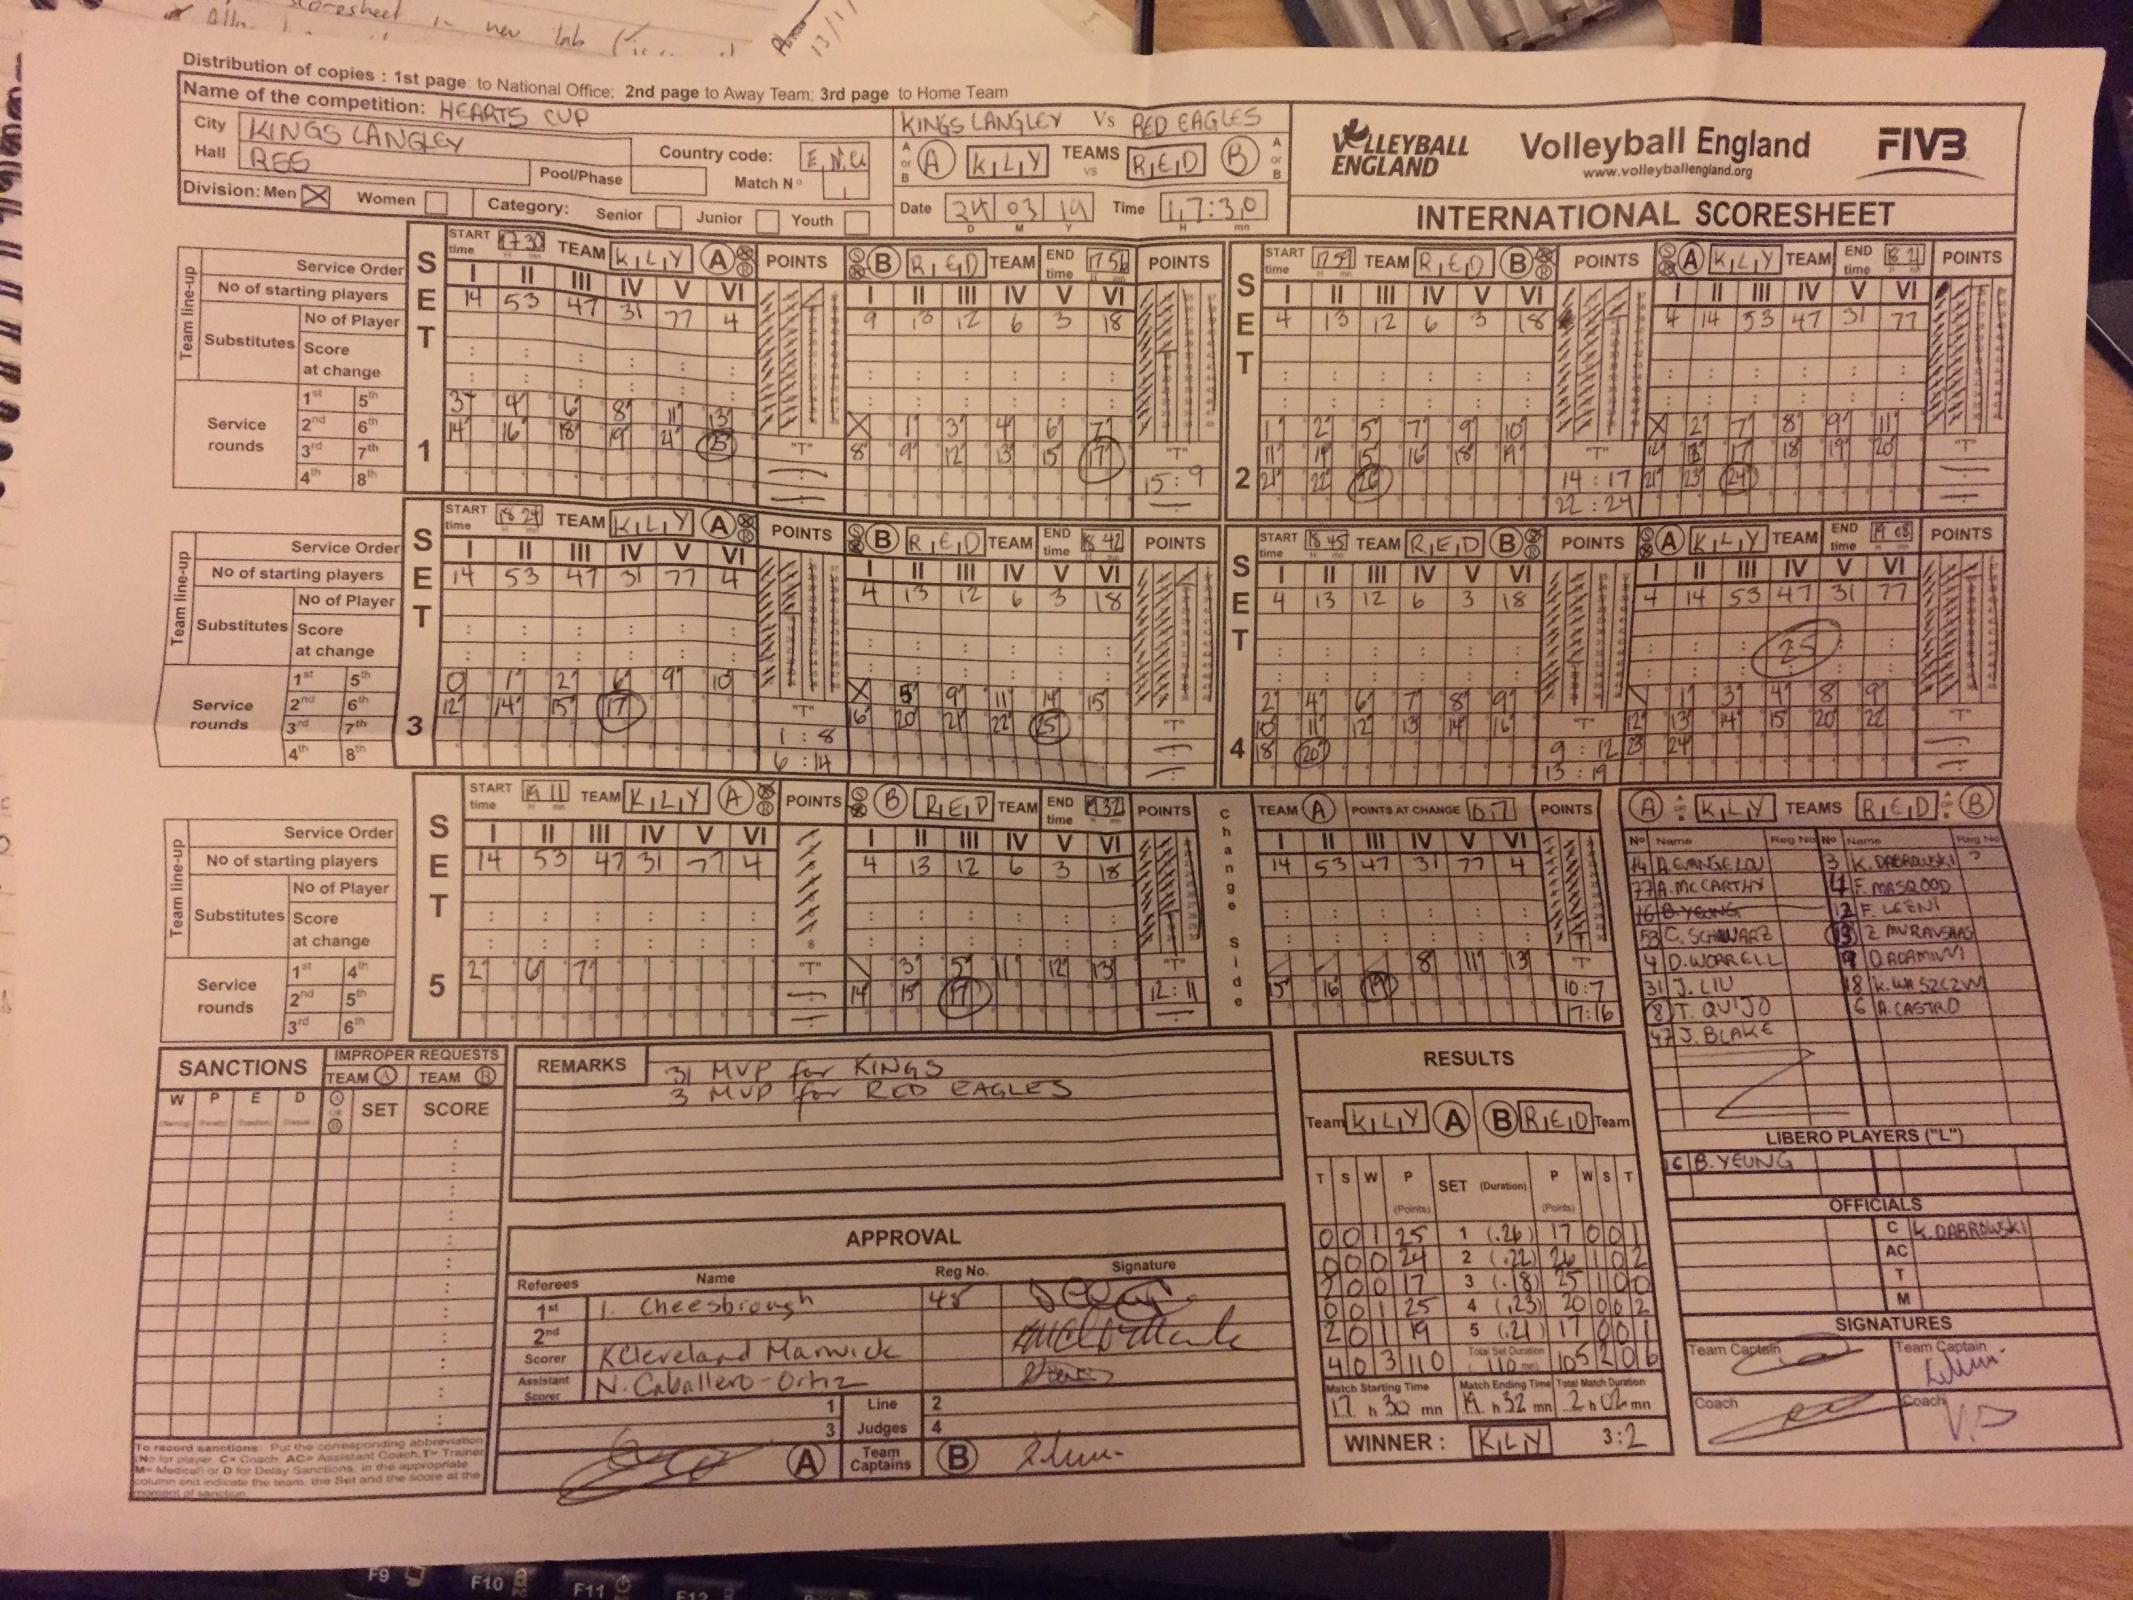 Distribution of copies : 1st page: to National Office; 2nd page to Away Team; 3rd page to Home Team
Name of the competition: HEARTS CUP
City KINGS LANGLEY
Hall
Country code: E.N.G
Pool/Phase
Match Nº
Division: Men X Women Category: Senior Junior Youth
KINGS LANGLEY Vs RED EAGLES
A or B A KLY TEAMS vs RED B A or B
Date 24 03 19 Time 17:30
VOLLEYBALL ENGLAND
Volleyball England
www.volleyballengland.org
FIVB
INTERNATIONAL SCORESHEET
Team line-up
Service Order
No of starting players
Substitutes
No of Player
Score at change
Service rounds
1st 5th
2nd 6th
3rd 7th
4th 8th
SET 1
START time 17 30 TEAM KLY A POINTS B RED TEAM END time 17 56 POINTS
I II III IV V VI I II III IV V VI
14 53 47 31 77 4 9 13 12 6 3 18
3 4 6 8 11 13 X 1 3 4 6 7
14 16 18 19 25 8 9 12 13 15 17
"T" "T"
15 : 9
SET 2
START time 17 59 TEAM RED B POINTS A KLY TEAM END time 18 21 POINTS
I II III IV V VI I II III IV V VI
4 13 12 6 3 18 4 14 53 47 31 77
1 2 5 7 9 10 X 2 7 8 9 11
11 14 15 16 18 19 12 17 18 19 20
21 22 26 21 23 24
"T" "T"
14 : 17
22 : 24
Team line-up
Service Order
No of starting players
Substitutes
No of Player
Score at change
Service rounds
1st 5th
2nd 6th
3rd 7th
4th 8th
SET 3
START time 18 24 TEAM KLY A POINTS B RED TEAM END time 18 42 POINTS
I II III IV V VI I II III IV V VI
14 53 47 31 77 4 4 13 12 6 3 18
0 1 2 6 9 10 X 5 9 11 14 15
12 14 15 17 16 20 21 22 25
"T" "T"
1 : 8
6 : 14
SET 4
START time 18 45 TEAM RED B POINTS A KLY TEAM END time 19 08 POINTS
I II III IV V VI I II III IV V VI
4 13 12 6 3 18 4 14 53 47 31 77
25
2 4 6 7 8 9 1 3 4 8 9
10 11 12 13 14 16 12 13 14 15 20 22
18 20 23 24
"T" "T"
9 : 12
13 : 19
Team line-up
Service Order
No of starting players
Substitutes
No of Player
Score at change
Service rounds
1st 4th
2nd 5th
3rd 6th
SET 5
START time 19 11 TEAM KLY A POINTS B RED TEAM END time 19 32 POINTS
I II III IV V VI I II III IV V VI
14 53 47 31 77 4 4 13 12 6 3 18
2 6 7 3 5 11 12 13
14 15 17
8
"T" "T"
12 : 11
Change Side
TEAM A POINTS AT CHANGE 07 POINTS
I II III IV V VI
14 53 47 31 77 4
8 11 13
15 16 19
"T"
10:7
17:16
A KLY TEAMS RED B
Nº Name Reg No Nº Name Reg No
14 A. EVANGELOU 3 K. DABROWSKI
77 A. MCCARTHY 4 F. MASQOOD
16 B. YEUNG 12 F. LEZNI
53 C. SCHWARZ 13
4 D. WORRELL 9
31 J. LIU 18
8 T. QUIJO 6 A. CASTRO
47 J. BLAKE
LIBERO PLAYERS ("L")
B. YEUNG
OFFICIALS
C K. DABROWSKI
AC
T
M
SIGNATURES
Team Captain Team Captain
Coach Coach
SANCTIONS
IMPROPER REQUESTS
TEAM A TEAM B
W P E D A OR B SET SCORE
To record sanctions: Put the corresponding abbreviation
(No for player, C= Coach, AC= Assistant Coach, T= Trainer
M= Medical) or D for Delay Sanctions, in the appropriate
column and indicate the team, the Set and the score at the
moment of sanction.
REMARKS
31 MVP for KINGS
3 MVP for RED EAGLES
APPROVAL
Referees Name Reg No. Signature
1st I. Cheesbrough 48
2nd
Scorer K Cleveland Marwick
Assistant Scorer N. Caballero-Ortiz
1 Line 2
3 Judges 4
A Team Captains B
RESULTS
Team KLY A B RED Team
T S W P (Points) SET (Duration) P (Points) W S T
0 0 1 25 1 (26) 17 0 0 1
0 0 0 24 2 (22) 26 1 0 2
2 0 0 17 3 (18) 25 1 0 0
0 0 1 25 4 (23) 20 0 0 2
2 0 1 19 5 (21) 17 0 0 1
Total Set Duration
4 0 3 110 (110 mn) 105 2 0 6
Match Starting Time Match Ending Time Total Match Duration
17 h 30 mn 19 h 32 mn 2 h 02 mn
WINNER: KLY 3:2
F9 F10 F11 F12